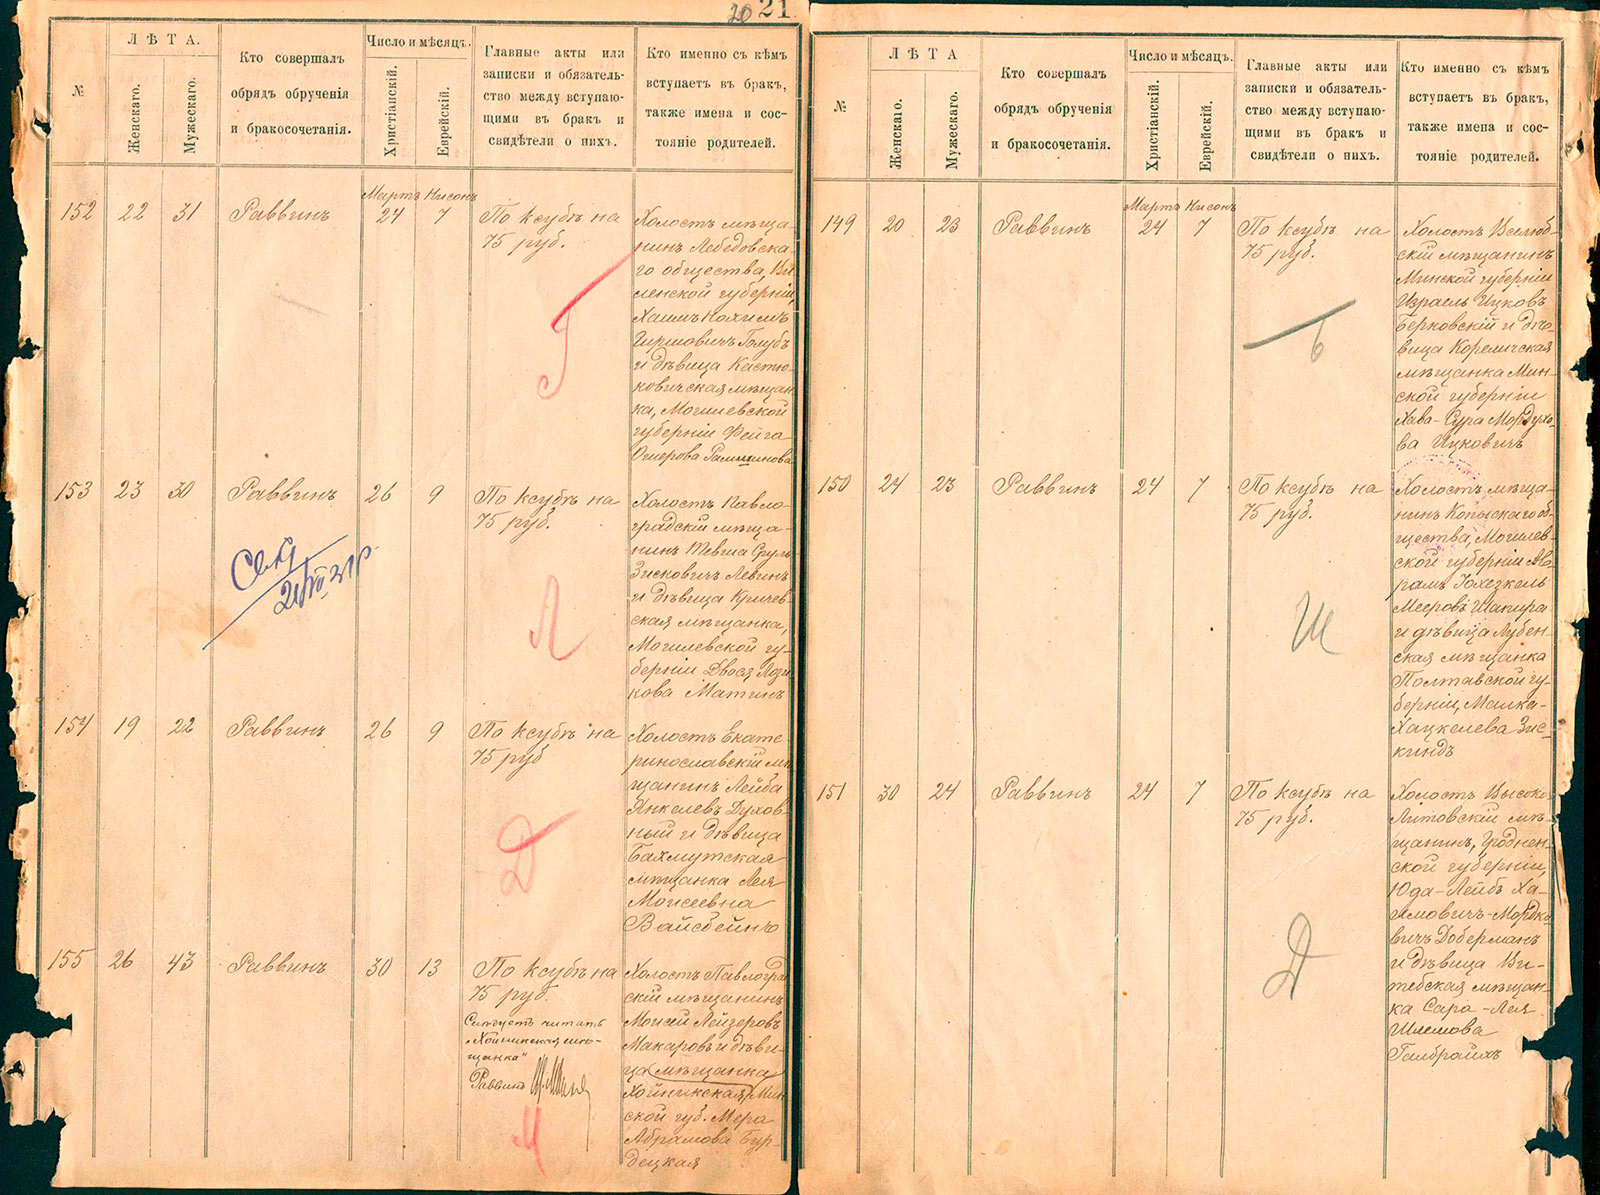 20 21
№
ЛѢТА.
Женскаго.
Мужескаго.
Кто совершалъ
обрядъ обрученія
и бракосочетанія.
Число и мѣсяцъ.
Христіанскій.
Еврейскій.
Главные акты или
записки и обязатель-
ство между вступаю-
щими въ бракъ и
свидѣтели о нихъ.
Кто именно съ кѣмъ
вступаетъ въ бракъ,
также имена и сос-
тояніе родителей.
Мартъ Нисонъ
152 22 31 Раввинъ 24 7
По ксубѣ на
75 руб.
Г
Холостъ мѣща-
нинъ Лебедовска-
го общества, Ви
ленской губерніи,
Хаимъ Нохимъ
Гиршовичъ Голубъ
и дѣвица Костю-
ковичская мѣщан
ка, Могилевской
губерніи Фейга
153 23 30 Раввинъ 26 9
По ксубѣ на
75 руб.
Л
Холостъ Павло-
градскій мѣща-
нинъ Тевіа Сруль
Зисковичъ Левинъ
и дѣвица Кричев-
ская мѣщанка,
Могилевской гу-
берніи Двося
кова Матинъ
154 19 22 Раввинъ 26 9
По ксубѣ на
75 руб
Д
Холостъ Екате
ринославскій мѣ
щанинъ Лейба
Янкелевъ Духов-
ный и дѣвица
Бахмутская
мѣщанка Лея
Моисеевна
Вайсбейнъ
155 26 43 Раввинъ 30 13
По ксубѣ на
75 руб.
Слѣдуетъ читать
"Хойникская мѣ-
щанка"
Раввинъ
М
Холостъ Павлогра
скій мѣщанинъ
Моисей Лейзеровъ
Макаровъ и дѣви-
ца мѣщанка
Хойникская, Мин
ской губ. Мера
Абрамова Бур-
децкая
№
ЛѢТА
Женскаго.
Мужескаго.
Кто совершалъ
обрядъ обрученія
и бракосочетанія.
Число и мѣсяцъ.
Христіанскій.
Еврейскій.
Главные акты или
записки и обязатель-
ство между вступаю-
щими въ бракъ и
свидѣтели о нихъ.
Кто именно съ кѣмъ
вступаетъ въ бракъ,
также имена и сос-
тояніе родителей.
Мартъ Нисонъ
149 20 23 Раввинъ 24 7
По ксубѣ на
75 руб.
Холостъ Вселюб-
скій мѣщанинъ
Минской губерніи
Израель Ицковъ
Берковскій и дѣ-
вица Кореличская
мѣщанка Мин-
ской губерніи
Хава-Сура Мордухо-
ва Ицковичъ
150 24 23 Раввинъ 24 7
По ксубѣ на
75 руб.
Ш
Холостъ мѣща-
нинъ Копыскаго об-
щества, Могилев-
ской губерніи Ав-
рамъ Іохезкель
Мееровъ Шапира
и дѣвица Лубен-
ская мѣщанка
Полтавской гу-
берніи, Малка-
Хацкелева Зис-
киндъ
151 30 24 Раввинъ 24 7
По ксубѣ на
75 руб.
Д
Холостъ Высоко-
Литовскій мѣ-
щанинъ, Гроднен-
ской губерніи,
Юда-Лейбъ Ха-
имовичъ-Мордко-
вичъ Доберманъ
и дѣвица Ви-
тебская мѣщан-
ка Сара-Лея
Шлемова
Гамбрайхъ